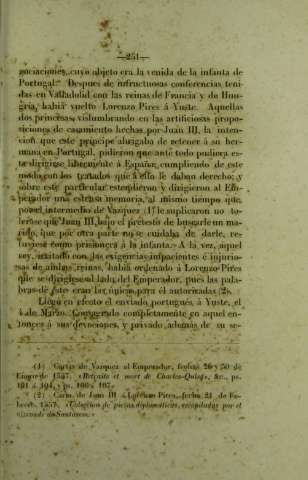 —251—
gociaciones, cuyo objeto era la venida de la infanta de
Portugal. Despues de infructuosas conferencias teni-
das en Valladolid con las reinas de Francia y de Hun-
gría, habia vuelto Lorenzo Pires á Yuste. Aquellas
dos princesas, vislumbrando en las artificiosas propo-
siciones de casamiento hechas por Juan III, la inten-
cion que este príncipe abrigaba de retener á su her-
mana en Portugal, pidieron que ante todo pudiera es-
ta dirigirse libremente á España, cumpliendo de este
modo con los tratados que á ello le daban derecho; y
sobre este particular estendieron y dirigieron al Em-
perador una estensa memoria, al mismo tiempo que
por el intermedio de Vazquez (1) le suplicaron no to-
lerase que Juan III, bajo el pretesto de buscarle un ma-
rido, que por otra parte no se cuidaba de darle, re-
tuviese como prisionera á la infanta. A la vez, aquel
rey, irritado con las exigencias impacientes é injurio-
sas de ambas reinas, habia ordenado á Lorenzo Pires
que se dirigiese al lado del Emperador, pues las pala-
bras de éste eran las únicas para él autorizadas (2).
Llegó en efecto el enviado portugués, á Yuste, el
4 de Marzo. Consagrado completamente en aquel en-
tonces á sus devociones, y privado además de su se-
(1) Cartas de Vazquez al Emperador, fechas 26 y 30 de
Enero de 1557. «Retraite et mort de Charles-Quint», &c., ps.
101 á 104, y ps. 106 á 107.
(2) Carta de Juan III á Lorenzo Pires, fecha 21 de Fe-
brero, 1557.